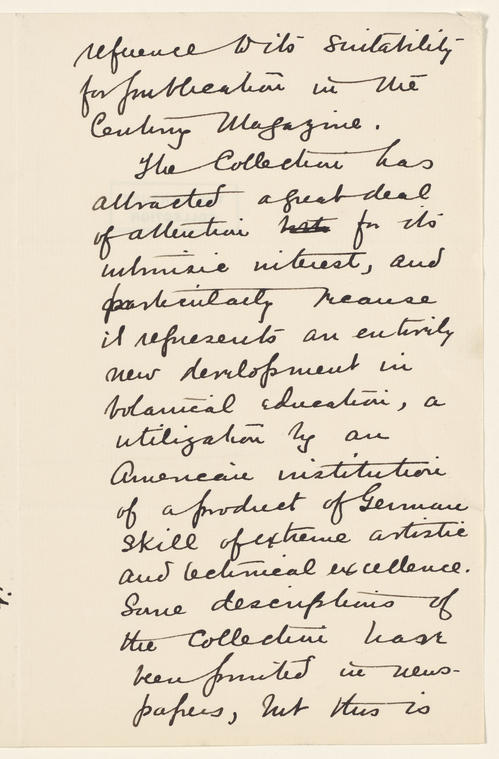 reference to its suitability
for publication in the
Century Magazine.
The Collection has
attracted a great deal
of attention for its
intrinsic interest, and
particularly because
it represents an entirely
new development in
botanical education, a
utilization by an
American institution
of a product of German
skill of extreme artistic
and technical excellence.
Some descriptions of
the Collection have
been printed in news-
papers, but this is